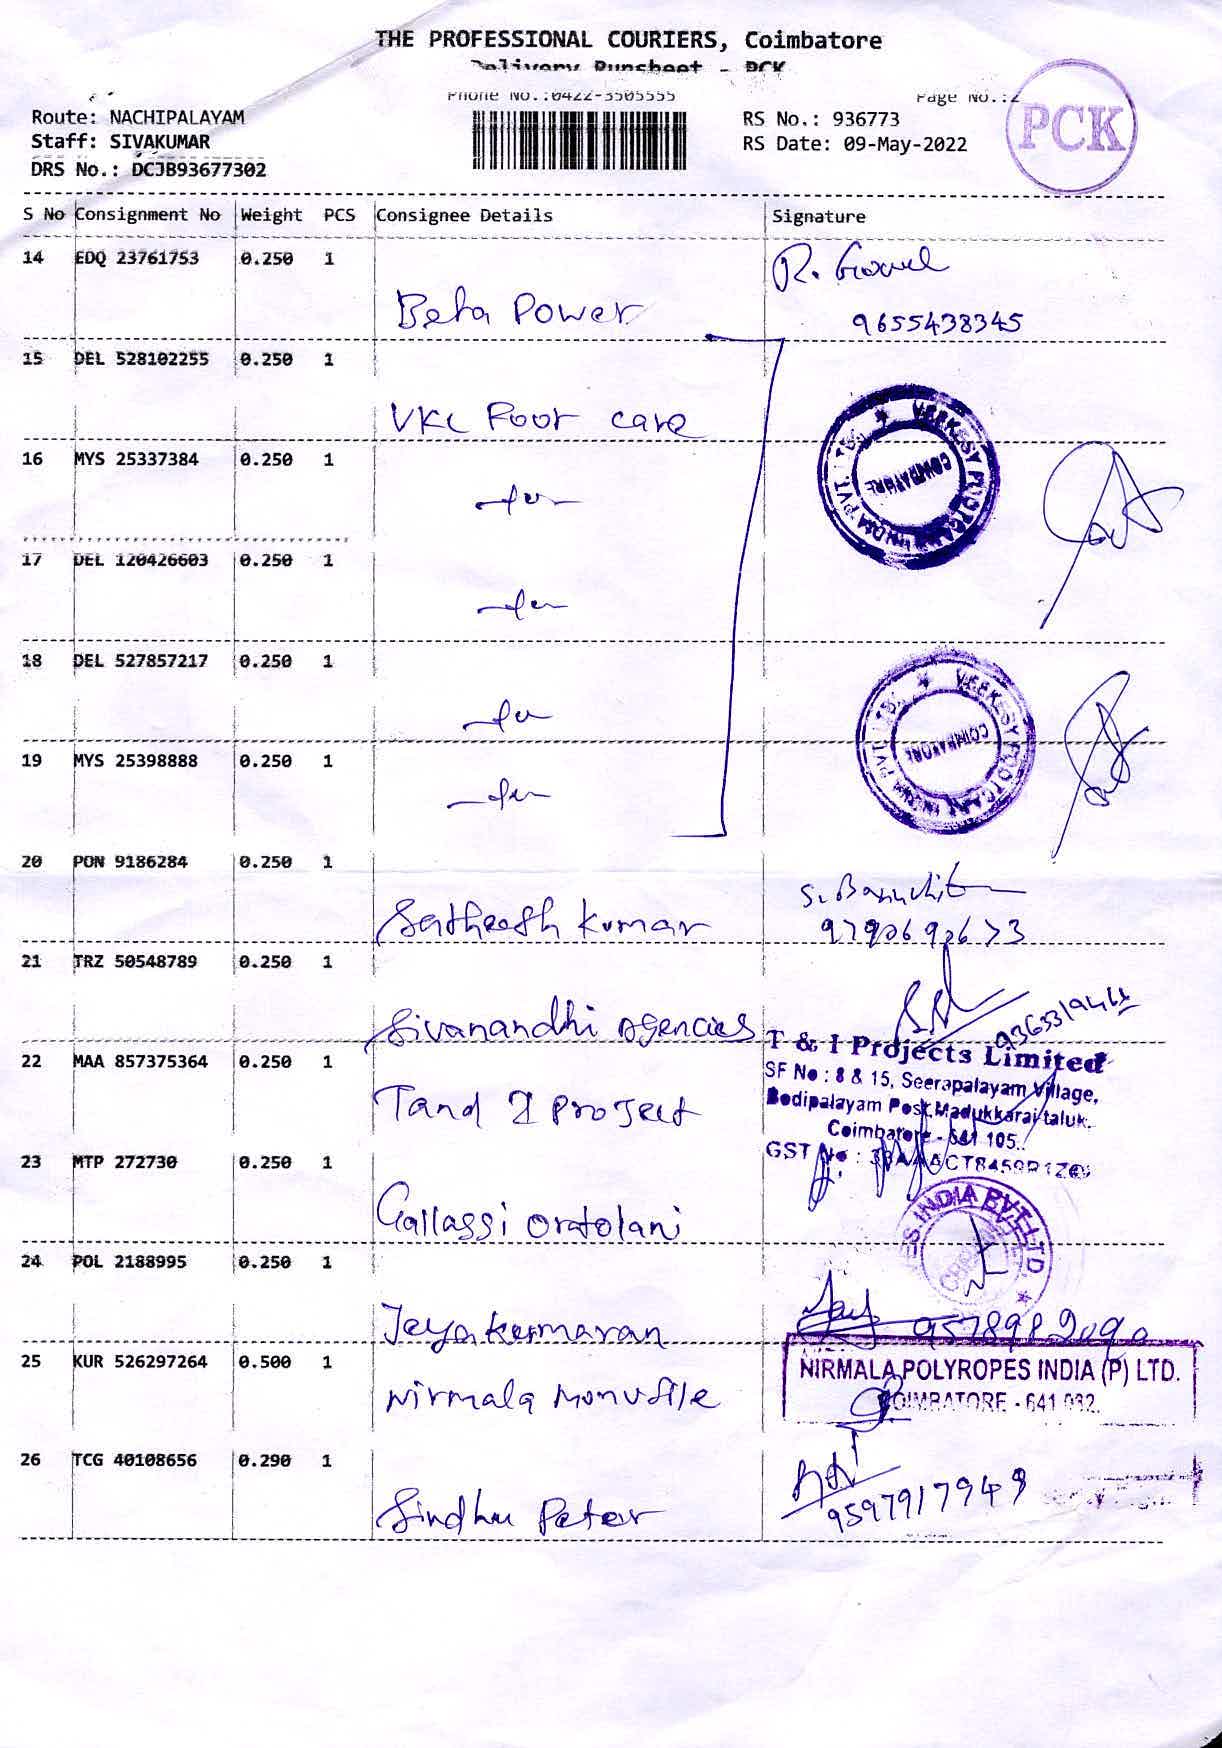 THE PROFESSIONAL COURIERS, Coimbatore
Delivery Runsheet - PCK
Phone No.:0422-3505555
Page No.:2
Route: NACHIPALAYAM
RS No.: 936773
PCK
Staff: SIVAKUMAR
RS Date: 09-May-2022
DRS No.: DCJB93677302
S No Consignment No Weight PCS Consignee Details Signature
14 EDQ 23761753 0.250 1
Beta Power
9655438345
15 DEL 528102255 0.250 1
VKC Foot care
16 MYS 25337384 0.250 1
VEEKESY FOOTCARE INDIA PVT. LTD. COIMBATORE
17 DEL 120426603 0.250 1
18 DEL 527857217 0.250 1
VEEKESY FOOTCARE INDIA PVT. LTD. COIMBATORE
19 MYS 25398888 0.250 1
20 PON 9186284 0.250 1
Satheesh kumar
21 TRZ 50548789 0.250 1
Sivanandhi agencies
22 MAA 857375364 0.250 1
Tand I Project
T & I Projects Limited
SF No : 8 & 15, Seerapalayam Village,
Bodipalayam Post, Madukkarai taluk.
Coimbatore - 641 105.
GST No :
23 MTP 272730 0.250 1
Gallassi oratolani
INDIA PVT. LTD.
24 POL 2188995 0.250 1
Jeyakumaran
25 KUR 526297264 0.500 1
Nirmala
NIRMALA POLYROPES INDIA (P) LTD.
COIMBATORE - 641 032.
26 TCG 40108656 0.290 1
Sindhu Peter
9597917949